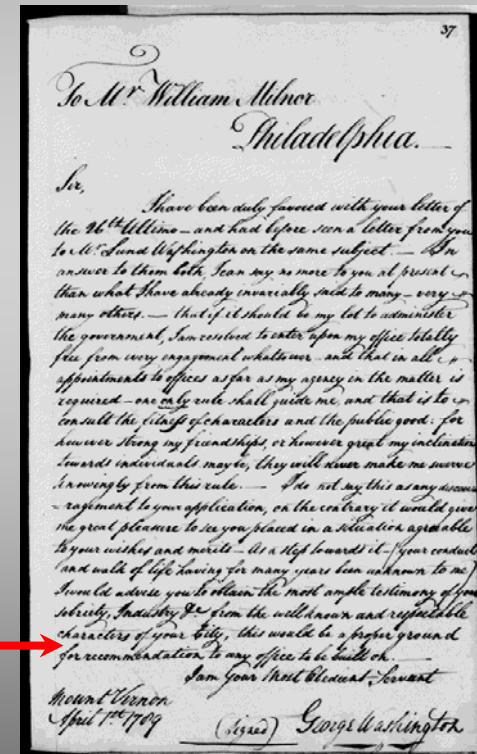 37
To Mr. William Milnor
Philadelphia.
Sir,
I have been duly favored with your letter of
the 26th Ultimo — and had before seen a letter from you
to Mr. Lund Washington on the same subject. — In
answer to them both, I can say no more to you at present
than what I have already invariably said to many — very
many others. — that if it should be my lot to administer
the government, I am resolved to enter upon my office totally
free from every engagement whatsoever — and that in all
appointments to offices as far as my agency in the matter is
required — one only rule shall guide me, and that is to
consult the fitness of characters and the public good: for
however strong my friendships, or however great my inclination
towards individuals may be, they will never make me swerve
knowingly from this rule. — I do not say this as any discou
-ragement to your application, on the contrary it would give
me great pleasure to see you placed in a situation agreeable
to your wishes and merits — As a step towards it — (your conduct
and walk of life having for many years been unknown to me)
I would advise you to obtain the most ample testimony of your
sobriety, Industry &c from the well known and respectable
characters of your City, this would be a proper ground
for recommendation to any office to be built on. —
I am Your Most Obedient Servant
Mount Vernon
April 1st 1789
(signed) George Washington